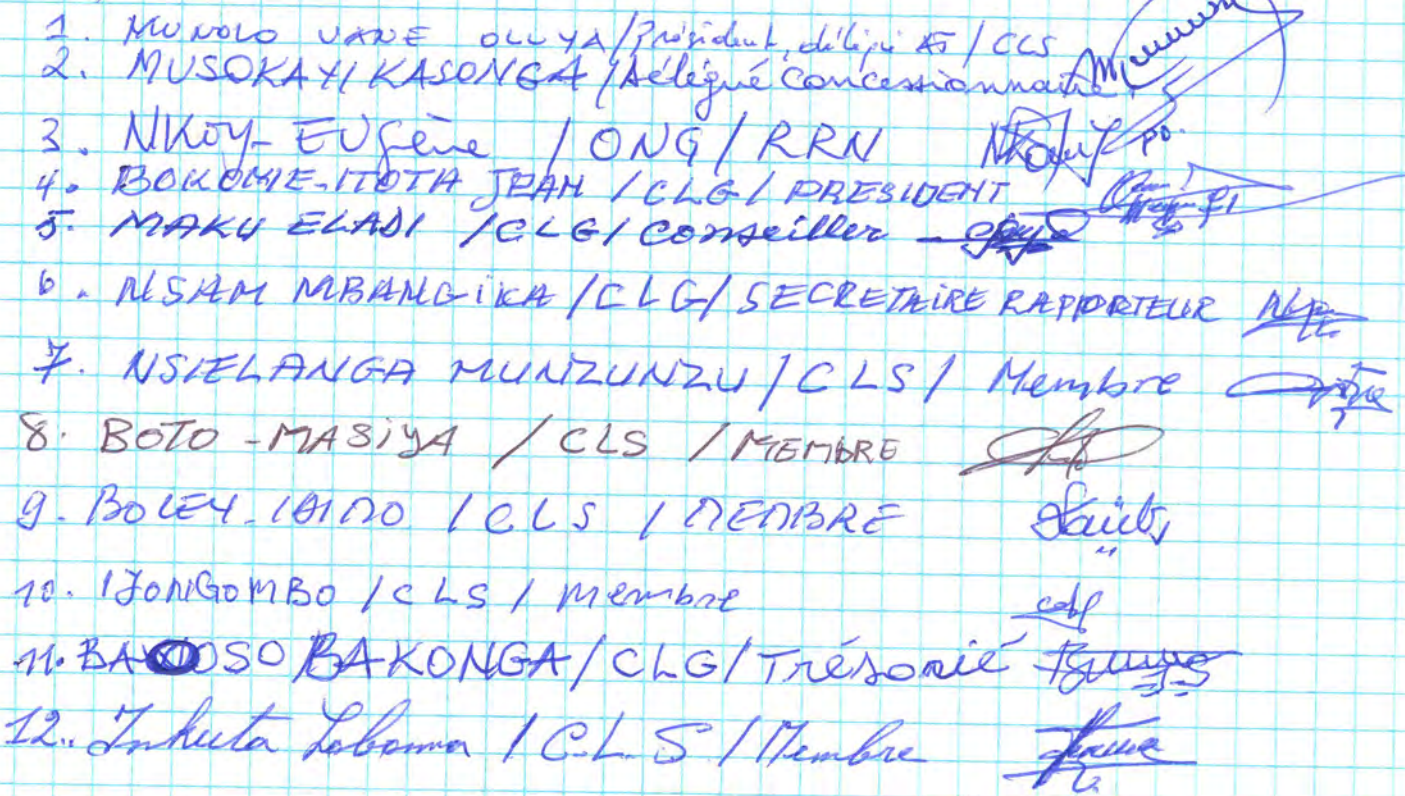 1. MUNOLO VANE OLLYA / Président, délégué / CLS
2. MUSOKAYI KASONGA / Délégué Concessionnaire
3. NKOY-EUGène / ONG / RRN po.
4. BOKOMIE-ITOTA JEAN / CLG / PRESIDENT
5. MAKU ELADI / CLG / Conseiller
6. NSAM MBANGiKA / CLG / SECRETAIRE RAPPORTEUR
7. NSIELANGA MUNZUNZU / CLS / Membre
8. BOTO-MASiYA / CLS / MEMBRE
9. BOLEY / CLS / MEMBRE
10. IJONGOMBO / CLS / membre
11. BAKONGA / CLG / Trésorié
12. Inkuta / C.L.S / Membre